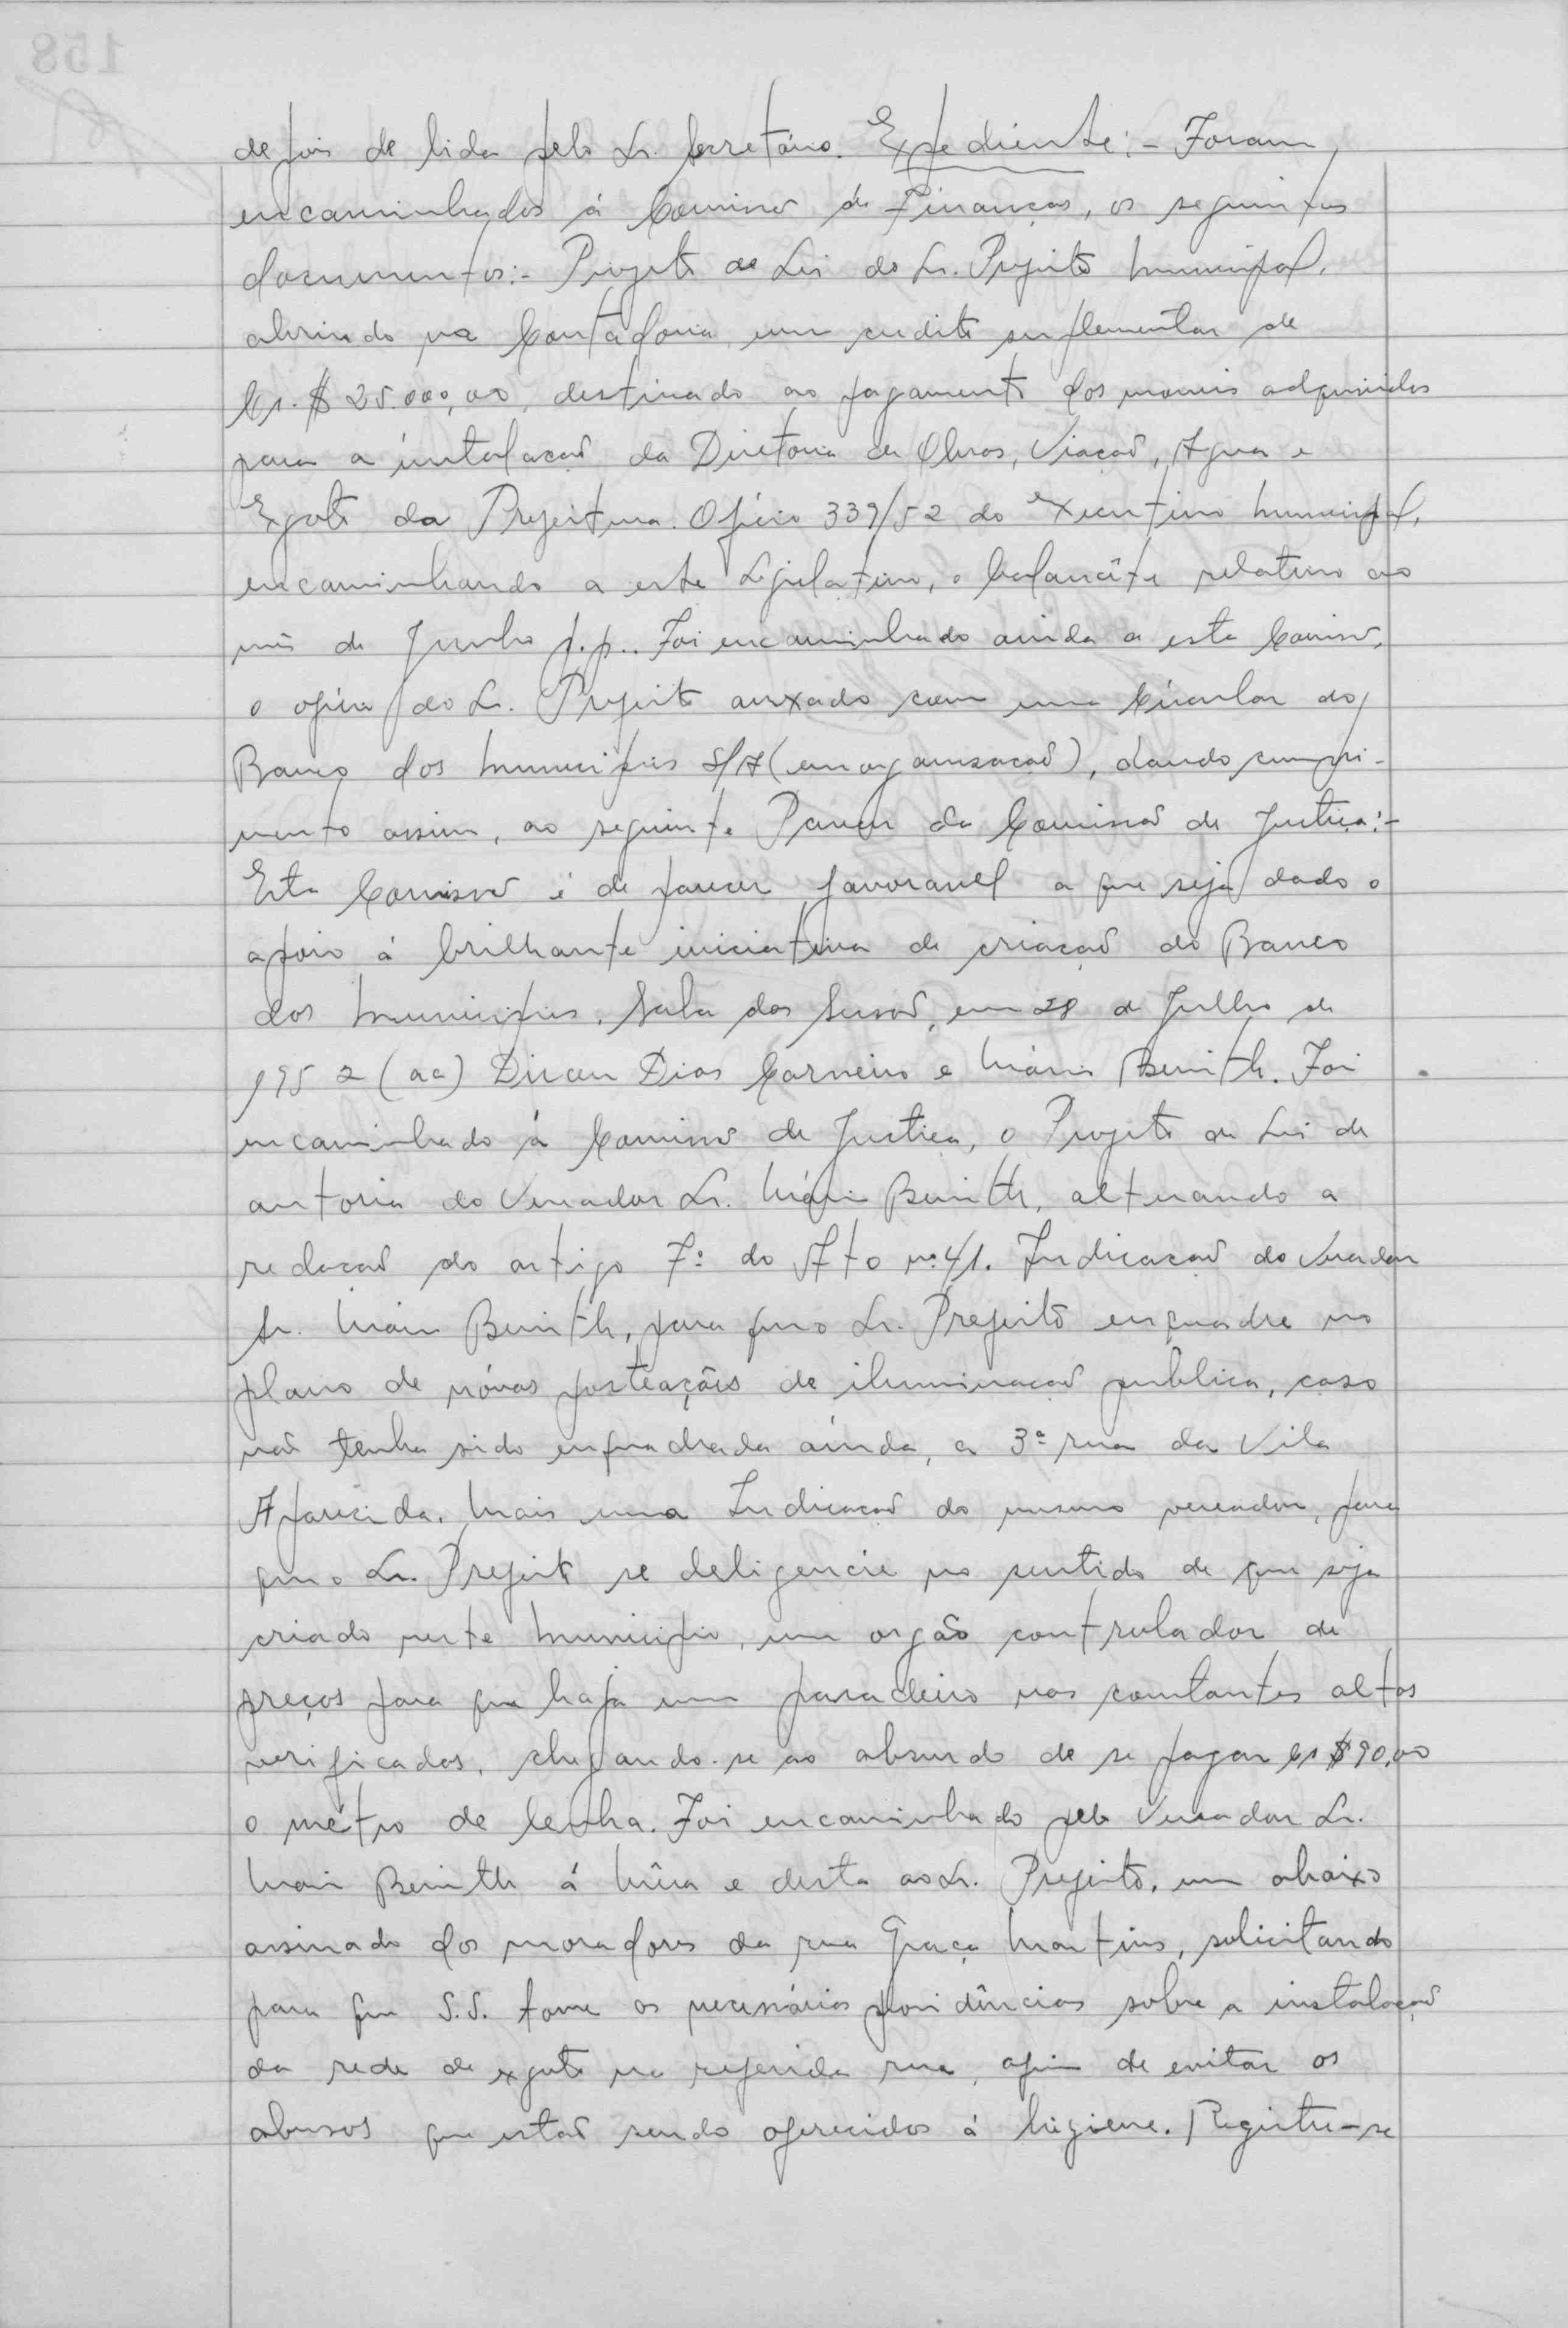 158
depois de lida pelo Sr. Secretário. Expediente:- Foram,
encaminhados á Comissão de Finanças, os seguintes
documentos:- Projeto de Lei do Sr. Prefeito Municipal,
abrindo na Contadoria um credito suplementar de
Cr. $ 25.000,00, destinado ao pagamento dos moveis adquiridos
para a instalacão da Diretoria de Obras, Viacão, Agua e
Exgoto da Prefeitura. Ofício 339/52 do Executivo Municipal,
encaminhando a este Legislativo, o balancête relativo ao
mês de Junho p.p.. Foi encaminhado ainda a esta Comissão,
o ofício do Sr. Prefeito anexado com uma Circular do
Banco dos Municipios S/A (em organisacão), dando cumpri-
mento assim, ao seguinte Parecer da Comissão de Justiça:-
Esta Comissão é de parecer favoravel a que seja dado o
apoio á brilhante iniciativa de criacão do Banco
dos Municipios. Sala das Sessões, em 28 de Julho de
1952 (aa) Dirceu Dias Carneiro e Mário Benith. Foi
encaminhado á Comissão de Justiça, o Projeto de Lei de
autoria do Vereador Sr. Mário Benith, alterando a
redacão do artigo 7º do Ato nº 41. Indicacão do Vereador
Sr. Mário Benith, para que o Sr. Prefeito enquadre no
plano de nóvas posteações de iluminacão publica, caso
não tenha sido enquadrada ainda, a 3ª rua da Vila
Aparecida. Mais uma Indicacão do mesmo vereador, para
que o Sr. Prefeito se deligencie no sentido de que seja
criado neste Municipio, um orgão controlador de
preços para que haja um paradeiro nas constantes altas
verificadas, chegando-se ao absurdo de se pagar Cr $ 90,00
o métro de lenha. Foi encaminhado pelo Vereador Sr.
Mário Benith á Mêsa e desta ao Sr. Prefeito, um abaixo
assinado dos moradores da rua Graça Martins, solicitando
para que S.S. tome as necessárias providências sobre a instalação
da rede de exgoto na referida rua, afim de evitar os
abusos que estão sendo oferecidos á higiene. Registre-se